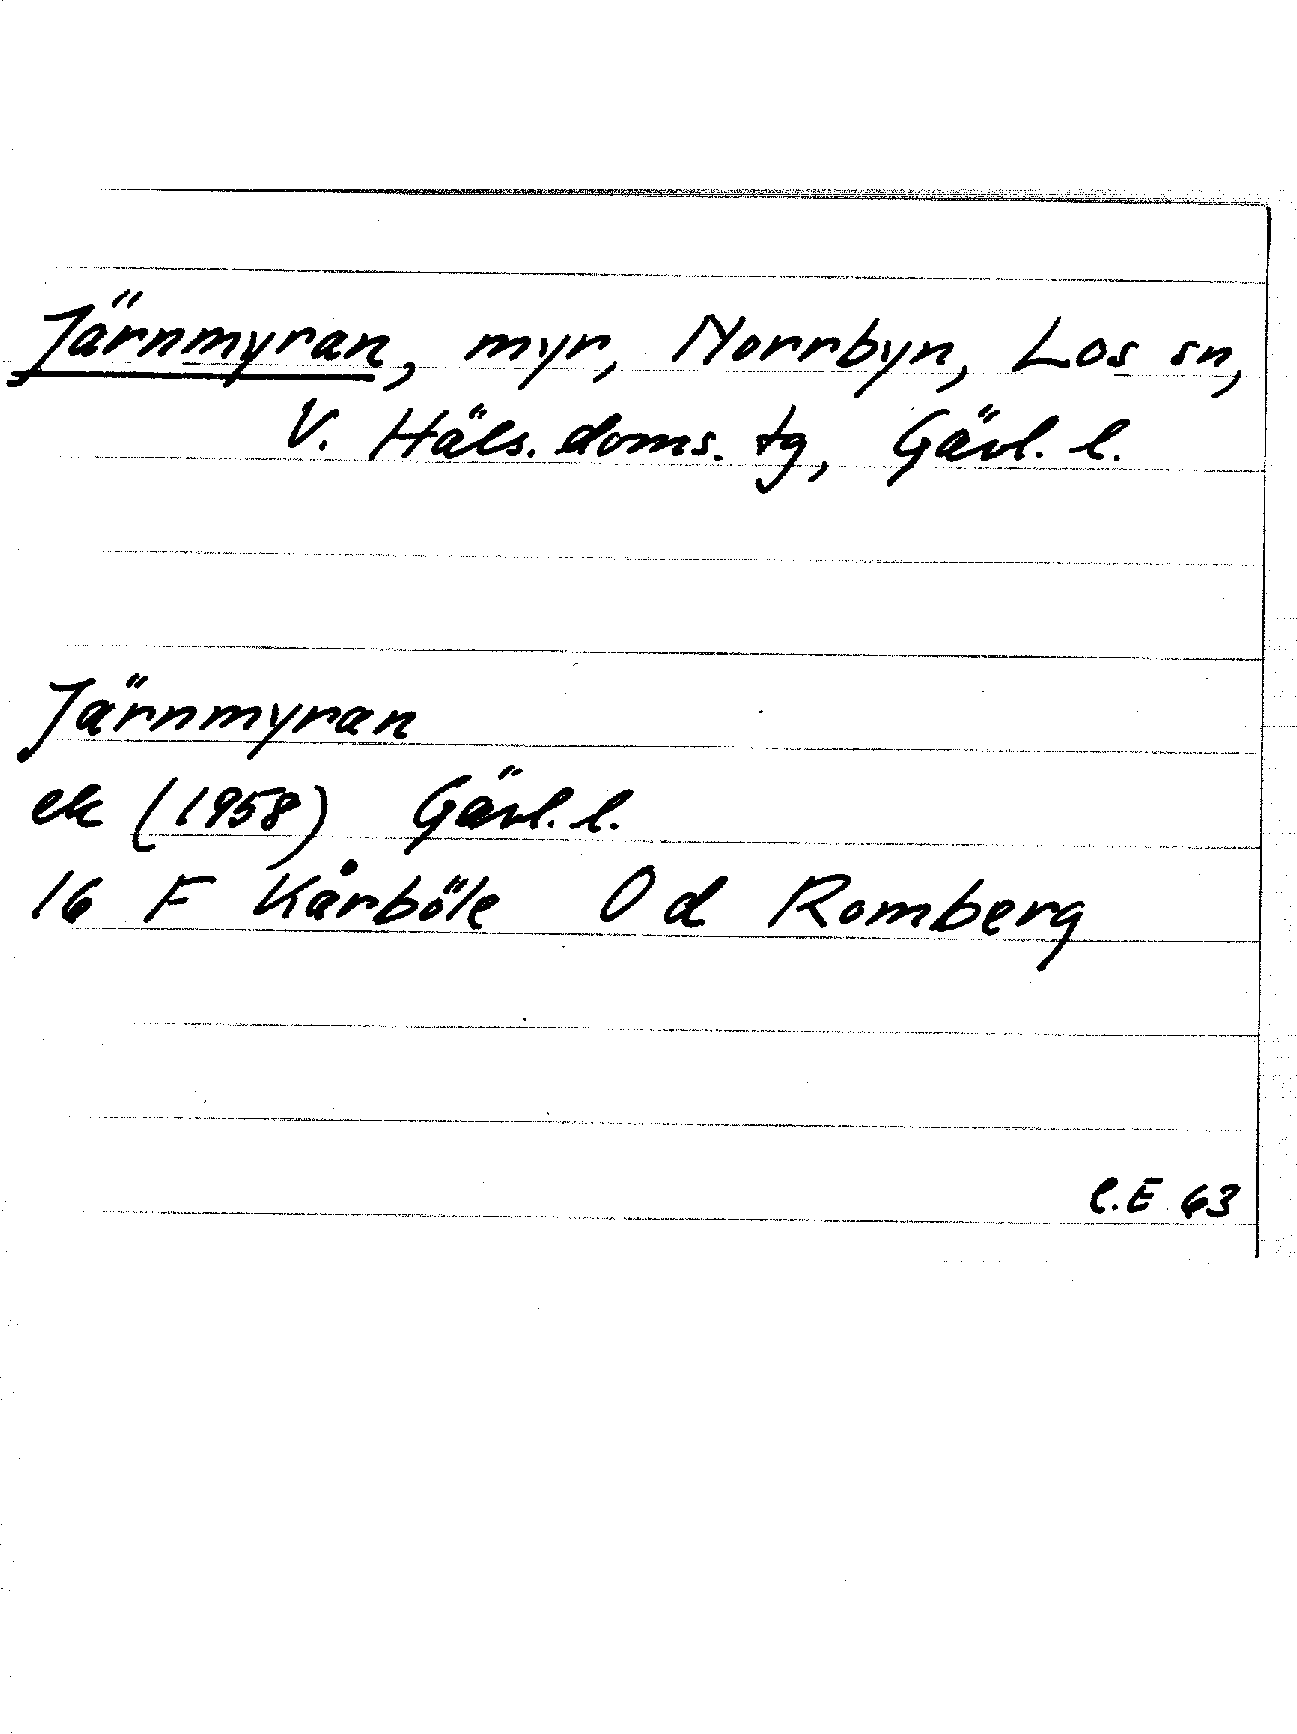 Järnmyran, myr, Norrbyn, Los sn,
V. Häls. doms. tg, Gävl. l.
Järnmyran
ek (1958) Gävl. l.
16 F Kårböle O d Romberg
C.E 63